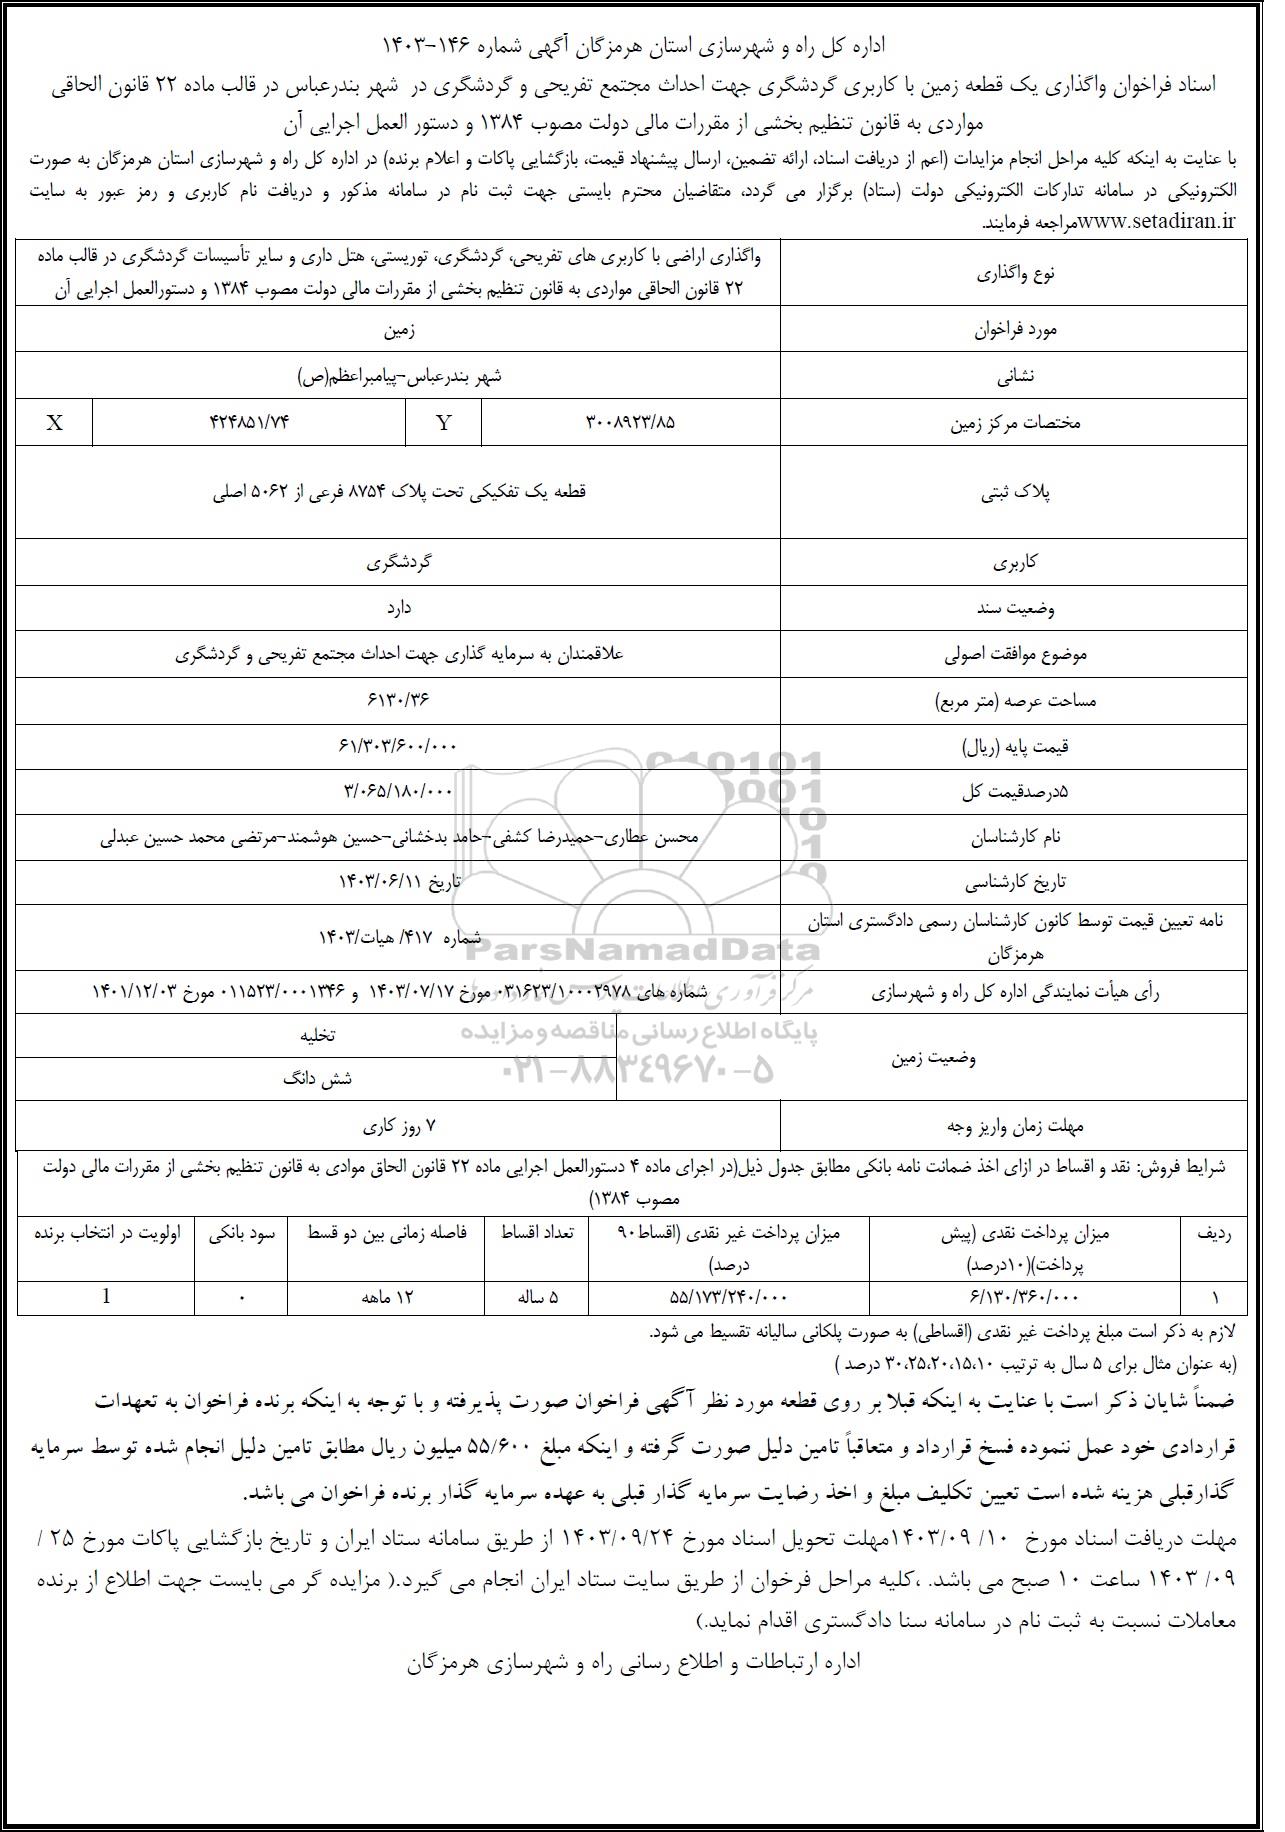 اداره کل راه و شهرسازی استان هرمزگان آگهی شماره ۱۴۶-۱۴۰۳
اسناد فراخوان واگذاری یک قطعه زمین با کاربری گردشگری جهت احداث مجتمع تفریحی و گردشگری در شهر بندرعباس در قالب ماده ۲۲ قانون الحاقی
مواردی به قانون تنظیم بخشی از مقررات مالی دولت مصوب ۱۳۸۴ و دستور العمل اجرایی آن
با عنایت به اینکه کلیه مراحل انجام مزایدات (اعم از دریافت اسناد، ارائه تضمین، ارسال پیشنهاد قیمت، بازگشایی پاکات و اعلام برنده) در اداره کل راه و شهرسازی استان هرمزگان به صورت
الکترونیکی در سامانه تدارکات الکترونیکی دولت (ستاد) برگزار می گردد، متقاضیان محترم بایستی جهت ثبت نام در سامانه مذکور و دریافت نام کاربری و رمز عبور به سایت
www.setadiran.irمراجعه فرمایند.
نوع واگذاری
واگذاری اراضی با کاربری های تفریحی، گردشگری، توریستی، هتل داری و سایر تأسیسات گردشگری در قالب ماده
۲۲ قانون الحاقی مواردی به قانون تنظیم بخشی از مقررات مالی دولت مصوب ۱۳۸۴ و دستورالعمل اجرایی آن
مورد فراخوان
زمین
نشانی
شهر بندرعباس-پیامبراعظم(ص)
مختصات مرکز زمین
۳۰۰۸۹۲۳/۸۵
Y
۴۲۴۸۵۱/۷۴
X
پلاک ثبتی
قطعه یک تفکیکی تحت پلاک ۸۷۵۴ فرعی از ۵۰۶۲ اصلی
کاربری
گردشگری
وضعیت سند
دارد
موضوع موافقت اصولی
علاقمندان به سرمایه گذاری جهت احداث مجتمع تفریحی و گردشگری
مساحت عرصه (متر مربع)
۶۱۳۰/۳۶
قیمت پایه (ریال)
۶۱/۳۰۳/۶۰۰/۰۰۰
۵درصدقیمت کل
۳/۰۶۵/۱۸۰/۰۰۰
نام کارشناسان
محسن عطاری-حمیدرضا کشفی-حامد بدخشانی-حسین هوشمند-مرتضی محمد حسین عبدلی
تاریخ کارشناسی
تاریخ ۱۴۰۳/۰۶/۱۱
نامه تعیین قیمت توسط کانون کارشناسان رسمی دادگستری استان
هرمزگان
شماره ۴۱۷/ هیات/۱۴۰۳
رأی هیأت نمایندگی اداره کل راه و شهرسازی
شماره های ۰۳۱۶۲۳/۱۰۰۰۲۹۷۸ مورخ ۱۴۰۳/۰۷/۱۷ و ۰۱۱۵۲۳/۰۰۰۱۳۴۶ مورخ ۱۴۰۱/۱۲/۰۳
وضعیت زمین
تخلیه
شش دانگ
مهلت زمان واریز وجه
۷ روز کاری
شرایط فروش: نقد و اقساط در ازای اخذ ضمانت نامه بانکی مطابق جدول ذیل(در اجرای ماده ۴ دستورالعمل اجرایی ماده ۲۲ قانون الحاق موادی به قانون تنظیم بخشی از مقررات مالی دولت
مصوب ۱۳۸۴)
ردیف
میزان پرداخت نقدی (پیش
پرداخت)(۱۰درصد)
میزان پرداخت غیر نقدی (اقساط۹۰
درصد)
تعداد اقساط
فاصله زمانی بین دو قسط
سود بانکی
اولویت در انتخاب برنده
۱
۶/۱۳۰/۳۶۰/۰۰۰
۵۵/۱۷۳/۲۴۰/۰۰۰
۵ ساله
۱۲ ماهه
۰
1
لازم به ذکر است مبلغ پرداخت غیر نقدی (اقساطی) به صورت پلکانی سالیانه تقسیط می شود.
(به عنوان مثال برای ۵ سال به ترتیب ۳۰،۲۵،۲۰،۱۵،۱۰ درصد )
ضمناً شایان ذکر است با عنایت به اینکه قبلا بر روی قطعه مورد نظر آگهی فراخوان صورت پذیرفته و با توجه به اینکه برنده فراخوان به تعهدات
قراردادی خود عمل ننموده فسخ قرارداد و متعاقباً تامین دلیل صورت گرفته و اینکه مبلغ ۵۵/۶۰۰ میلیون ریال مطابق تامین دلیل انجام شده توسط سرمایه
گذارقبلی هزینه شده است تعیین تکلیف مبلغ و اخذ رضایت سرمایه گذار قبلی به عهده سرمایه گذار برنده فراخوان می باشد.
مهلت دریافت اسناد مورخ ۱۰ /۱۴۰۳/۰۹مهلت تحویل اسناد مورخ ۱۴۰۳/۰۹/۲۴ از طریق سامانه ستاد ایران و تاریخ بازگشایی پاکات مورخ ۲۵ /
۰۹/ ۱۴۰۳ ساعت ۱۰ صبح می باشد. ،کلیه مراحل فرخوان از طریق سایت ستاد ایران انجام می گیرد.( مزایده گر می بایست جهت اطلاع از برنده
معاملات نسبت به ثبت نام در سامانه سنا دادگستری اقدام نماید.)
اداره ارتباطات و اطلاع رسانی راه و شهرسازی هرمزگان
ParsNamadData
پایگاه اطلاع رسانی مناقصه و مزایده
۰۲۱-۸۸۳۴۹۶۷۰-۵